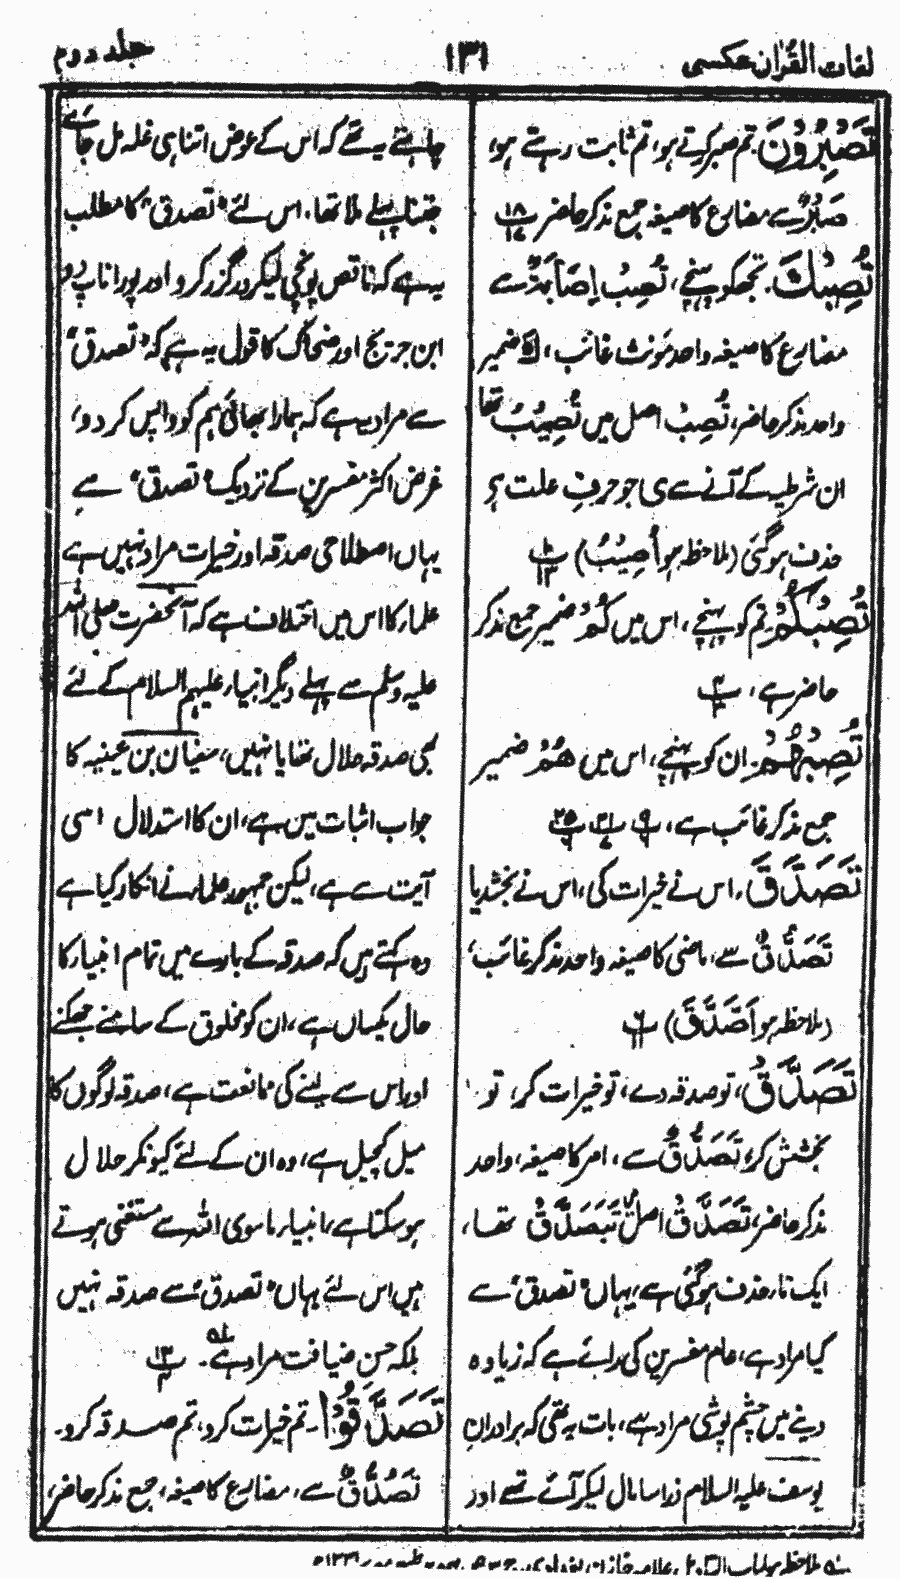 لغات القرآن عکسی
۱۳۱
جلد دوم
تَصْبِرُوْنَ، تم صبر کرتے ہو، تم ثابت رہتے ہو،
صَبْرٌ سے مضارع کا صیغہ جمع مذکر حاضر
تُصِبْكَ، تجھ کو پہنچے، تُصِبْ اِصَابَةٌ سے
مضارع کا صیغہ واحد مؤنث غائب، ك ضمیر
واحد مذکر حاضر، تُصِبْ اصل میں تُصِیْبُ تھا
ان شرطیہ کے آنے سے ی جو حرف علت ہے
حذف ہو گئی (ملاحظہ ہو اُصِیْبُ)
تُصِبْكُمْ، تم کو پہنچے، اس میں كُمْ ضمیر جمع مذکر
حاضر ہے،
تُصِبْهُمْ، ان کو پہنچے، اس میں هُمْ ضمیر
جمع مذکر غائب ہے،
تَصَدَّقَ، اس نے خیرات کی، اس نے بخشدیا
تَصَدُّقٌ سے، ماضی کا صیغہ واحد مذکر غائب،
(ملاحظہ ہو اَصَّدَّقَ)
تَصَدَّقْ، تو صدقہ دے، تو خیرات کر، تو
بخشش کر، تَصَدُّقٌ سے، امر کا صیغہ، واحد
مذکر حاضر، تَصَدَّقْ اصل تَتَصَدَّقْ تھا،
ایک تاء حذف ہو گئی ہے، یہاں "تصدق" سے
کیا مراد ہے، عام مفسرین کی رائے ہے کہ زیادہ
دینے میں چشم پوشی مراد ہے، بات یہ تھی کہ برادرانِ
یوسف علیہ السلام ذرا سا مال لیکر آئے تھے اور
چاہتے یہ تھے کہ اس کے عوض اتنا ہی غلہ مل جائے
جتنا پہلے ملا تھا، اس لئے "تصدق" کا مطلب
یہ ہے کہ ناقص پونجی لیکر درگزر کرو اور پورا ناپ دو
ابن جریج اور ضحاک کا قول یہ ہے کہ "تصدق"
سے مراد یہ ہے کہ ہمارا بھائی ہم کو واپس کر دو،
غرض اکثر مفسرین کے نزدیک "تصدق" سے
یہاں اصطلاحی صدقہ اور خیرات مراد نہیں ہے
علماء کا اس میں اختلاف ہے کہ آنحضرت صلی اللہ
علیہ وسلم سے پہلے دیگر انبیاء علیہم السلام کے لئے
بھی صدقہ حلال تھا یا نہیں، سفیان بن عیینہ کا
جواب اثبات میں ہے، ان کا استدلال اسی
آیت سے ہے، لیکن جمہور علماء نے انکار کیا ہے
وہ کہتے ہیں کہ صدقہ کے بارے میں تمام انبیاء کا
حال یکساں ہے، ان کو مخلوق کے سامنے جھکنے
اور اس سے لینے کی ممانعت ہے، صدقہ لوگوں کا
میل کچیل ہے، وہ ان کے لئے کیونکر حلال
ہو سکتا ہے، انبیاء ماسوی اللہ سے مستغنی ہوتے
ہیں اس لئے یہاں "تصدق" سے صدقہ نہیں
بلکہ حسن ضیافت مراد ہے۔
تَصَدَّقُوْا، تم خیرات کرو، تم صدقہ کرو۔
تَصَدُّقٌ سے، مضارع کا صیغہ، جمع مذکر حاضر،